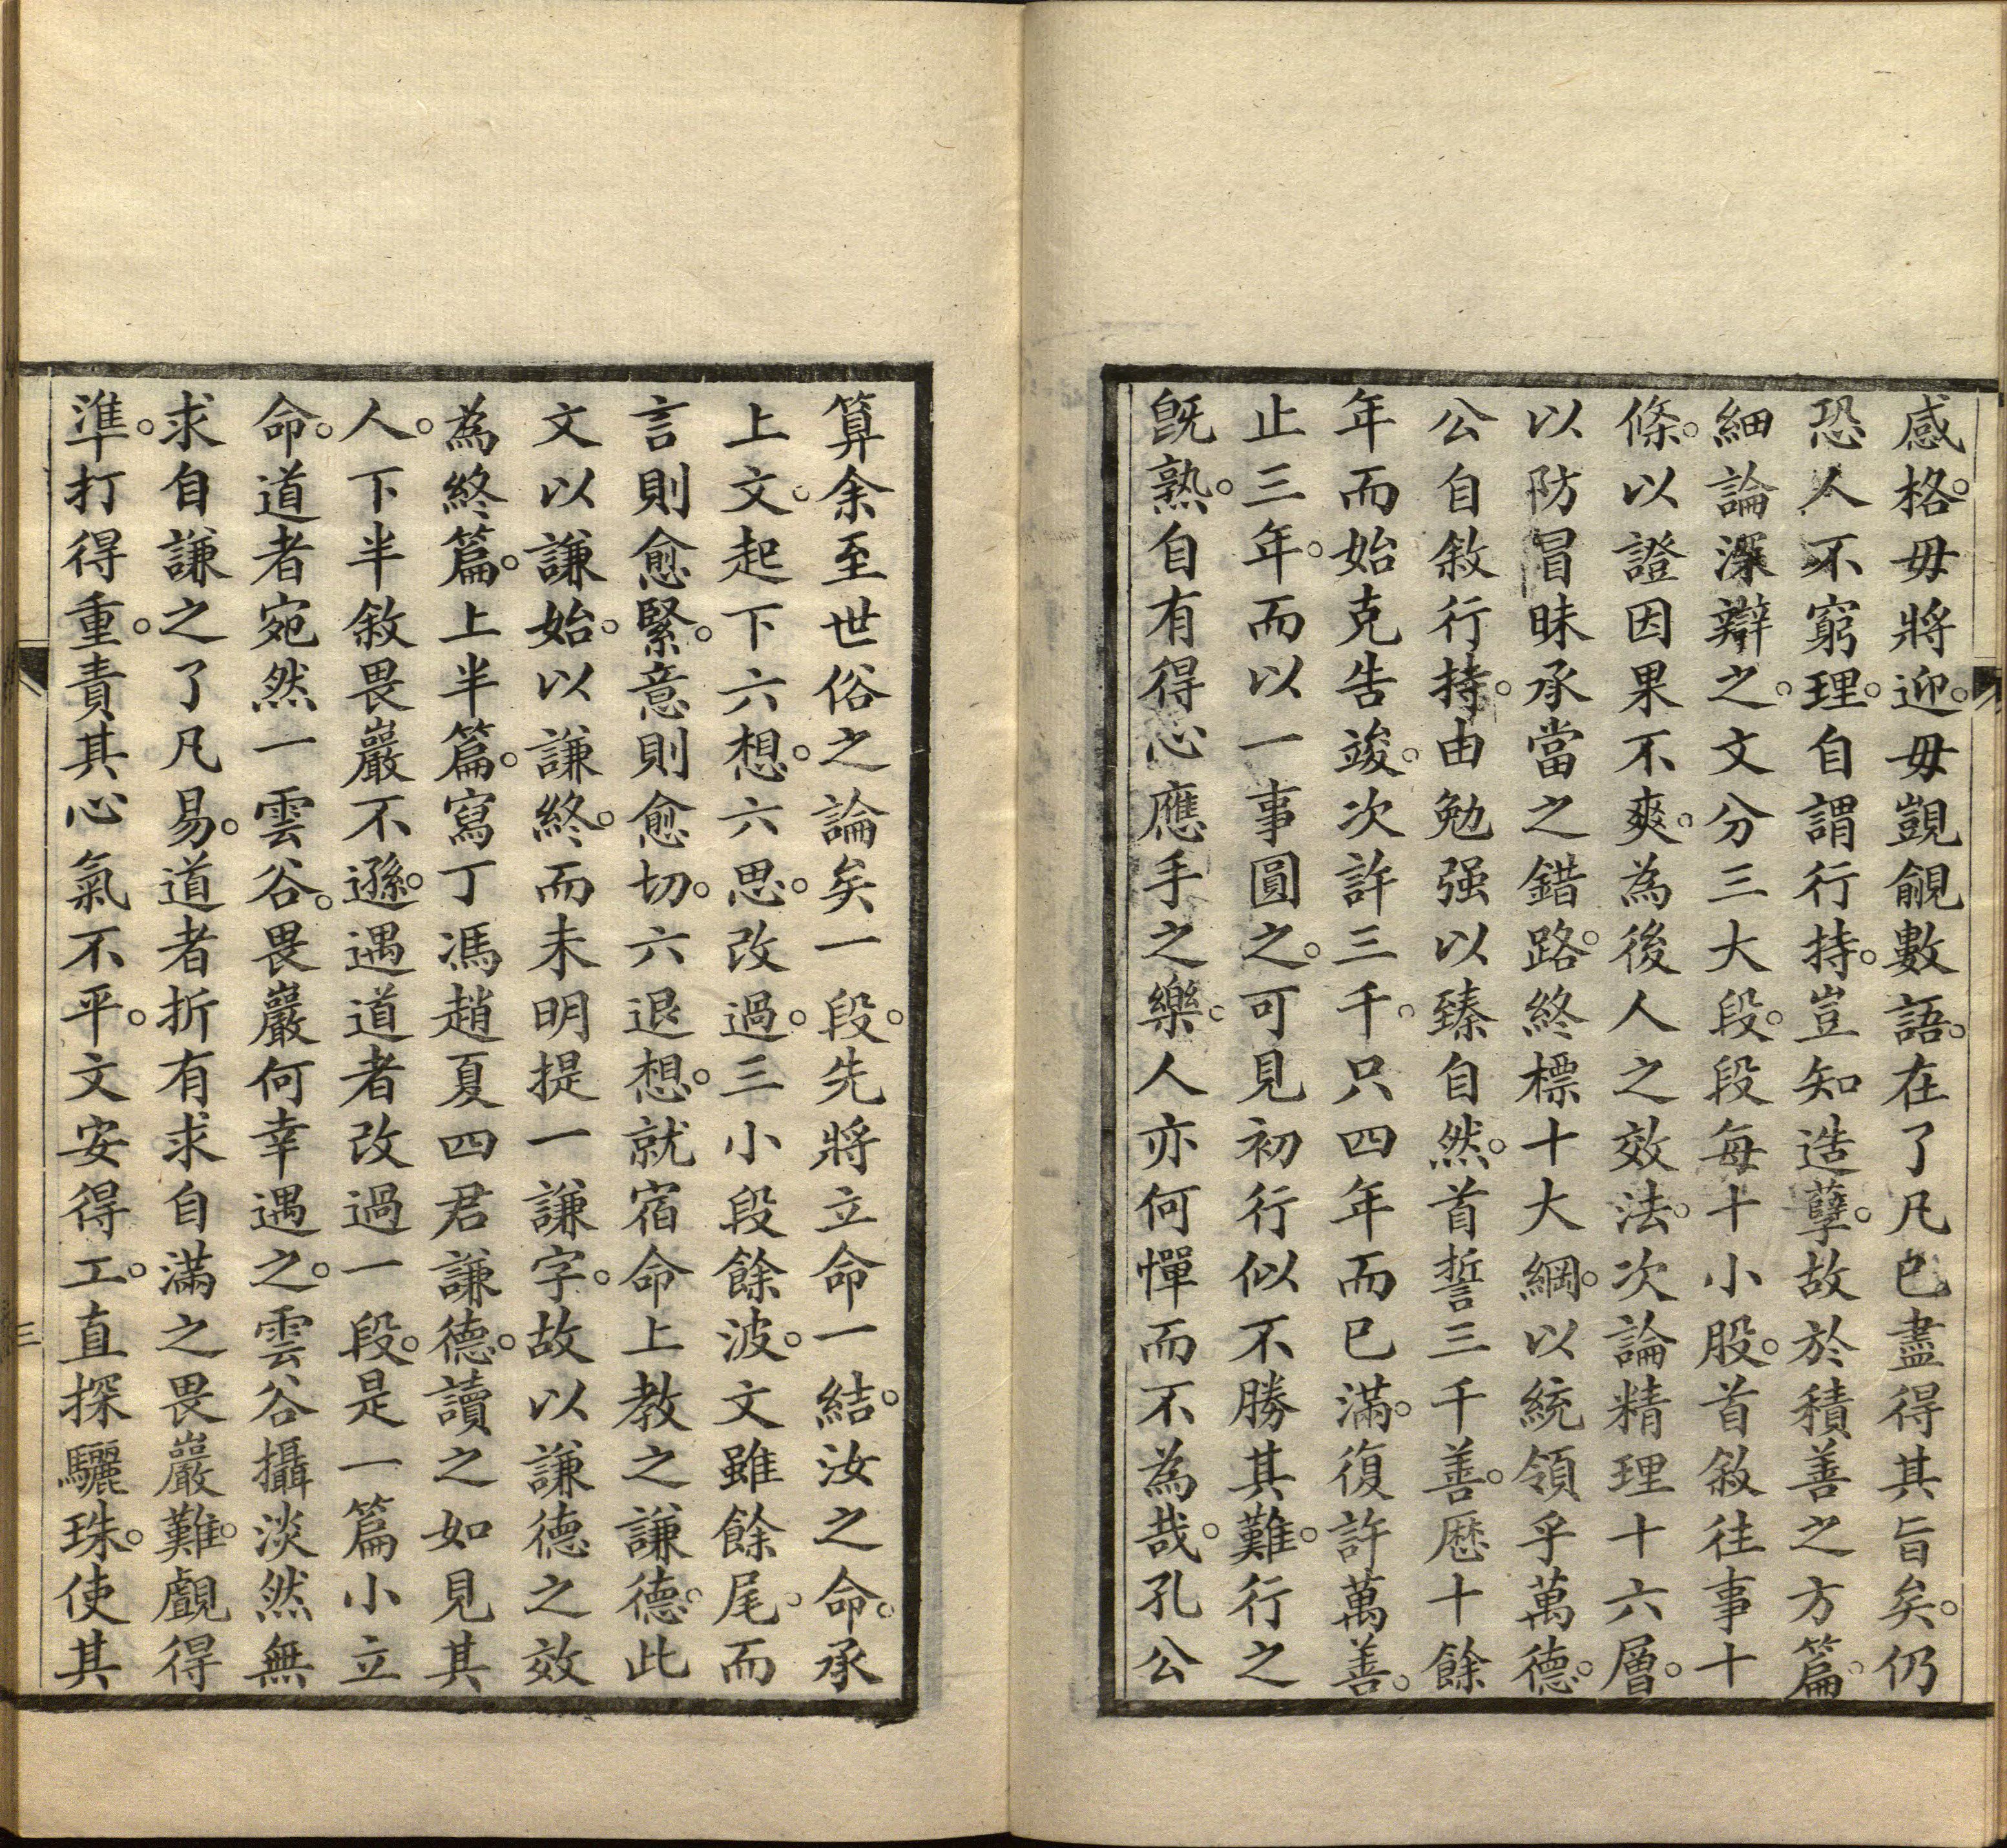 感格。毋將迎。毋覬覦數語。在了凡已盡得其旨矣。仍
恐人不窮理。自謂行持。豈知造孽。故於積善之方篇。
細論深辯之。文分三大段。段每十小股。首敘往事十
條。以證因果不爽。為後人之效法。次論精理十六層。
以防冒昧承當之錯路。終標十大綱。以統領乎萬德。
公自敘行持。由勉强以臻自然。首誓三千善。歷十餘
年而始克告竣。次許三千。只四年而已滿。復許萬善。
止三年。而以一事圓之。可見初行似不勝其難。行之
旣熟。自有得心應手之樂。人亦何憚而不為哉。孔公
算余至世俗之論矣一段。先將立命一結。汝之命。承
上文。起下六想。六思。改過。三小段餘波。文雖餘尾。而
言則愈緊。意則愈切。六退想。就宿命上教之謙德。此
文以謙始。以謙終。而未明提一謙字。故以謙德之效
為終篇。上半篇。寫丁馮趙夏四君謙德。讀之如見其
人。下半敘畏巖不遜。遇道者改過一段。是一篇小立
命。道者宛然一雲谷。畏巖何幸遇之。雲谷攝淡然無
求自謙之了凡易。道者折有求自滿之畏巖難。覷得
準。打得重。責其心氣不平。文安得工。直探驪珠。使其
三